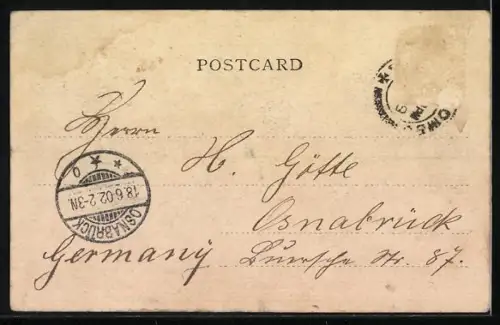 POSTCARD
Herrn
H. Götte
Osnabrück
Germany Str. 87.
OSNABRÜCK
18.6.02.2-3N.